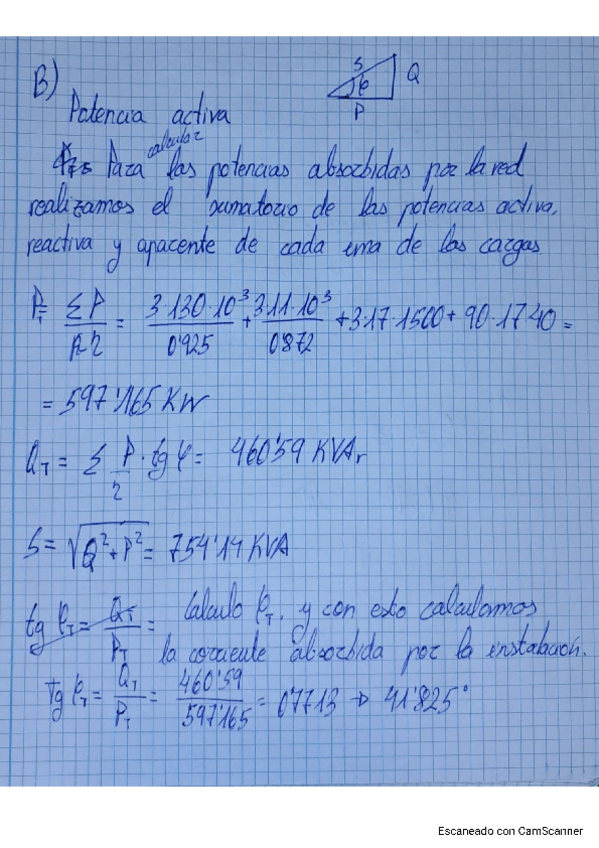 B)
S
φ
Q
P
Potencia activa
calcular
Para las potencias absorbidas por la red
realizamos el sumatorio de las potencias activa,
reactiva y aparente de cada una de las cargas
P_T = ΣP / η = 3·130·10³ / 0'925 + 3·11·10³ / 0'872 + 3·17·1500 + 90·1740 =
= 597'165 KW
Q_T = Σ P/η · tg φ = 460'59 KVAr
S = √(Q² + P²) = 754'14 KVA
tg φ_T = Q_T / P_T = Calculo φ_T, y con esto calculamos
la corriente absorbida por la instalación.
Tg φ_T = Q_T / P_T = 460'59 / 597'165 = 0'7713 → 41'825°
Escaneado con CamScanner